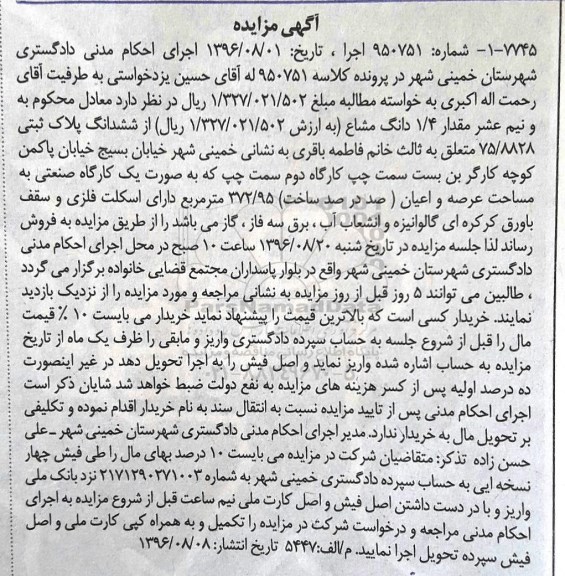 آگهی مزایده
۷۷۴۵-۱- شماره: ۹۵۰۷۵۱ اجرا ، تاریخ: ۱۳۹۶/۰۸/۰۱ اجرای احکام مدنی دادگستری
شهرستان خمینی شهر در پرونده کلاسه ۹۵۰۷۵۱ له آقای حسین یزدخواستی به طرفیت آقای
رحمت اله اکبری به خواسته مطالبه مبلغ ۱/۳۲۷/۰۲۱/۵۰۲ ریال در نظر دارد معادل محکوم به
و نیم عشر مقدار ۱/۴ دانگ مشاع (به ارزش ۱/۳۲۷/۰۲۱/۵۰۲ ریال) از ششدانگ پلاک ثبتی
۷۵/۸۸۲۸ متعلق به ثالث خانم فاطمه باقری به نشانی خمینی شهر خیابان بسیج خیابان پاکمن
کوچه کارگر بن بست سمت چپ کارگاه دوم سمت چپ که به صورت یک کارگاه صنعتی به
مساحت عرصه و اعیان ( صد در صد ساخت) ۳۷۲/۹۵ مترمربع دارای اسکلت فلزی و سقف
باورق کرکره ای گالوانیزه و انشعاب آب ، برق سه فاز ، گاز می باشد را از طریق مزایده به فروش
رساند لذا جلسه مزایده در تاریخ شنبه ۱۳۹۶/۰۸/۲۰ ساعت ۱۰ صبح در محل اجرای احکام مدنی
دادگستری شهرستان خمینی شهر واقع در بلوار پاسداران مجتمع قضایی خانواده برگزار می گردد
، طالبین می توانند ۵ روز قبل از روز مزایده به نشانی مراجعه و مورد مزایده را از نزدیک بازدید
نمایند. خریدار کسی است که بالاترین قیمت را پیشنهاد نماید خریدار می بایست ۱۰ ٪ قیمت
مال را قبل از شروع جلسه به حساب سپرده دادگستری واریز و مابقی را ظرف یک ماه از تاریخ
مزایده به حساب اشاره شده واریز نماید و اصل فیش را به اجرا تحویل دهد در غیر اینصورت
ده درصد اولیه پس از کسر هزینه های مزایده به نفع دولت ضبط خواهد شد شایان ذکر است
اجرای احکام مدنی پس از تایید مزایده نسبت به انتقال سند به نام خریدار اقدام نموده و تکلیفی
بر تحویل مال به خریدار ندارد. مدیر اجرای احکام مدنی دادگستری شهرستان خمینی شهر ـ علی
حسن زاده تذکر: متقاضیان شرکت در مزایده می بایست ۱۰ درصد بهای مال را طی فیش چهار
نسخه ایی به حساب سپرده دادگستری خمینی شهر به شماره ۲۱۷۱۲۹۰۲۷۱۰۰۳ نزد بانک ملی
واریز و با در دست داشتن اصل فیش و اصل کارت ملی نیم ساعت قبل از شروع مزایده به اجرای
احکام مدنی مراجعه و درخواست شرکت در مزایده را تکمیل و به همراه کپی کارت ملی و اصل
فیش سپرده تحویل اجرا نمایید. م/الف:۵۴۴۷ تاریخ انتشار: ۱۳۹۶/۰۸/۰۸